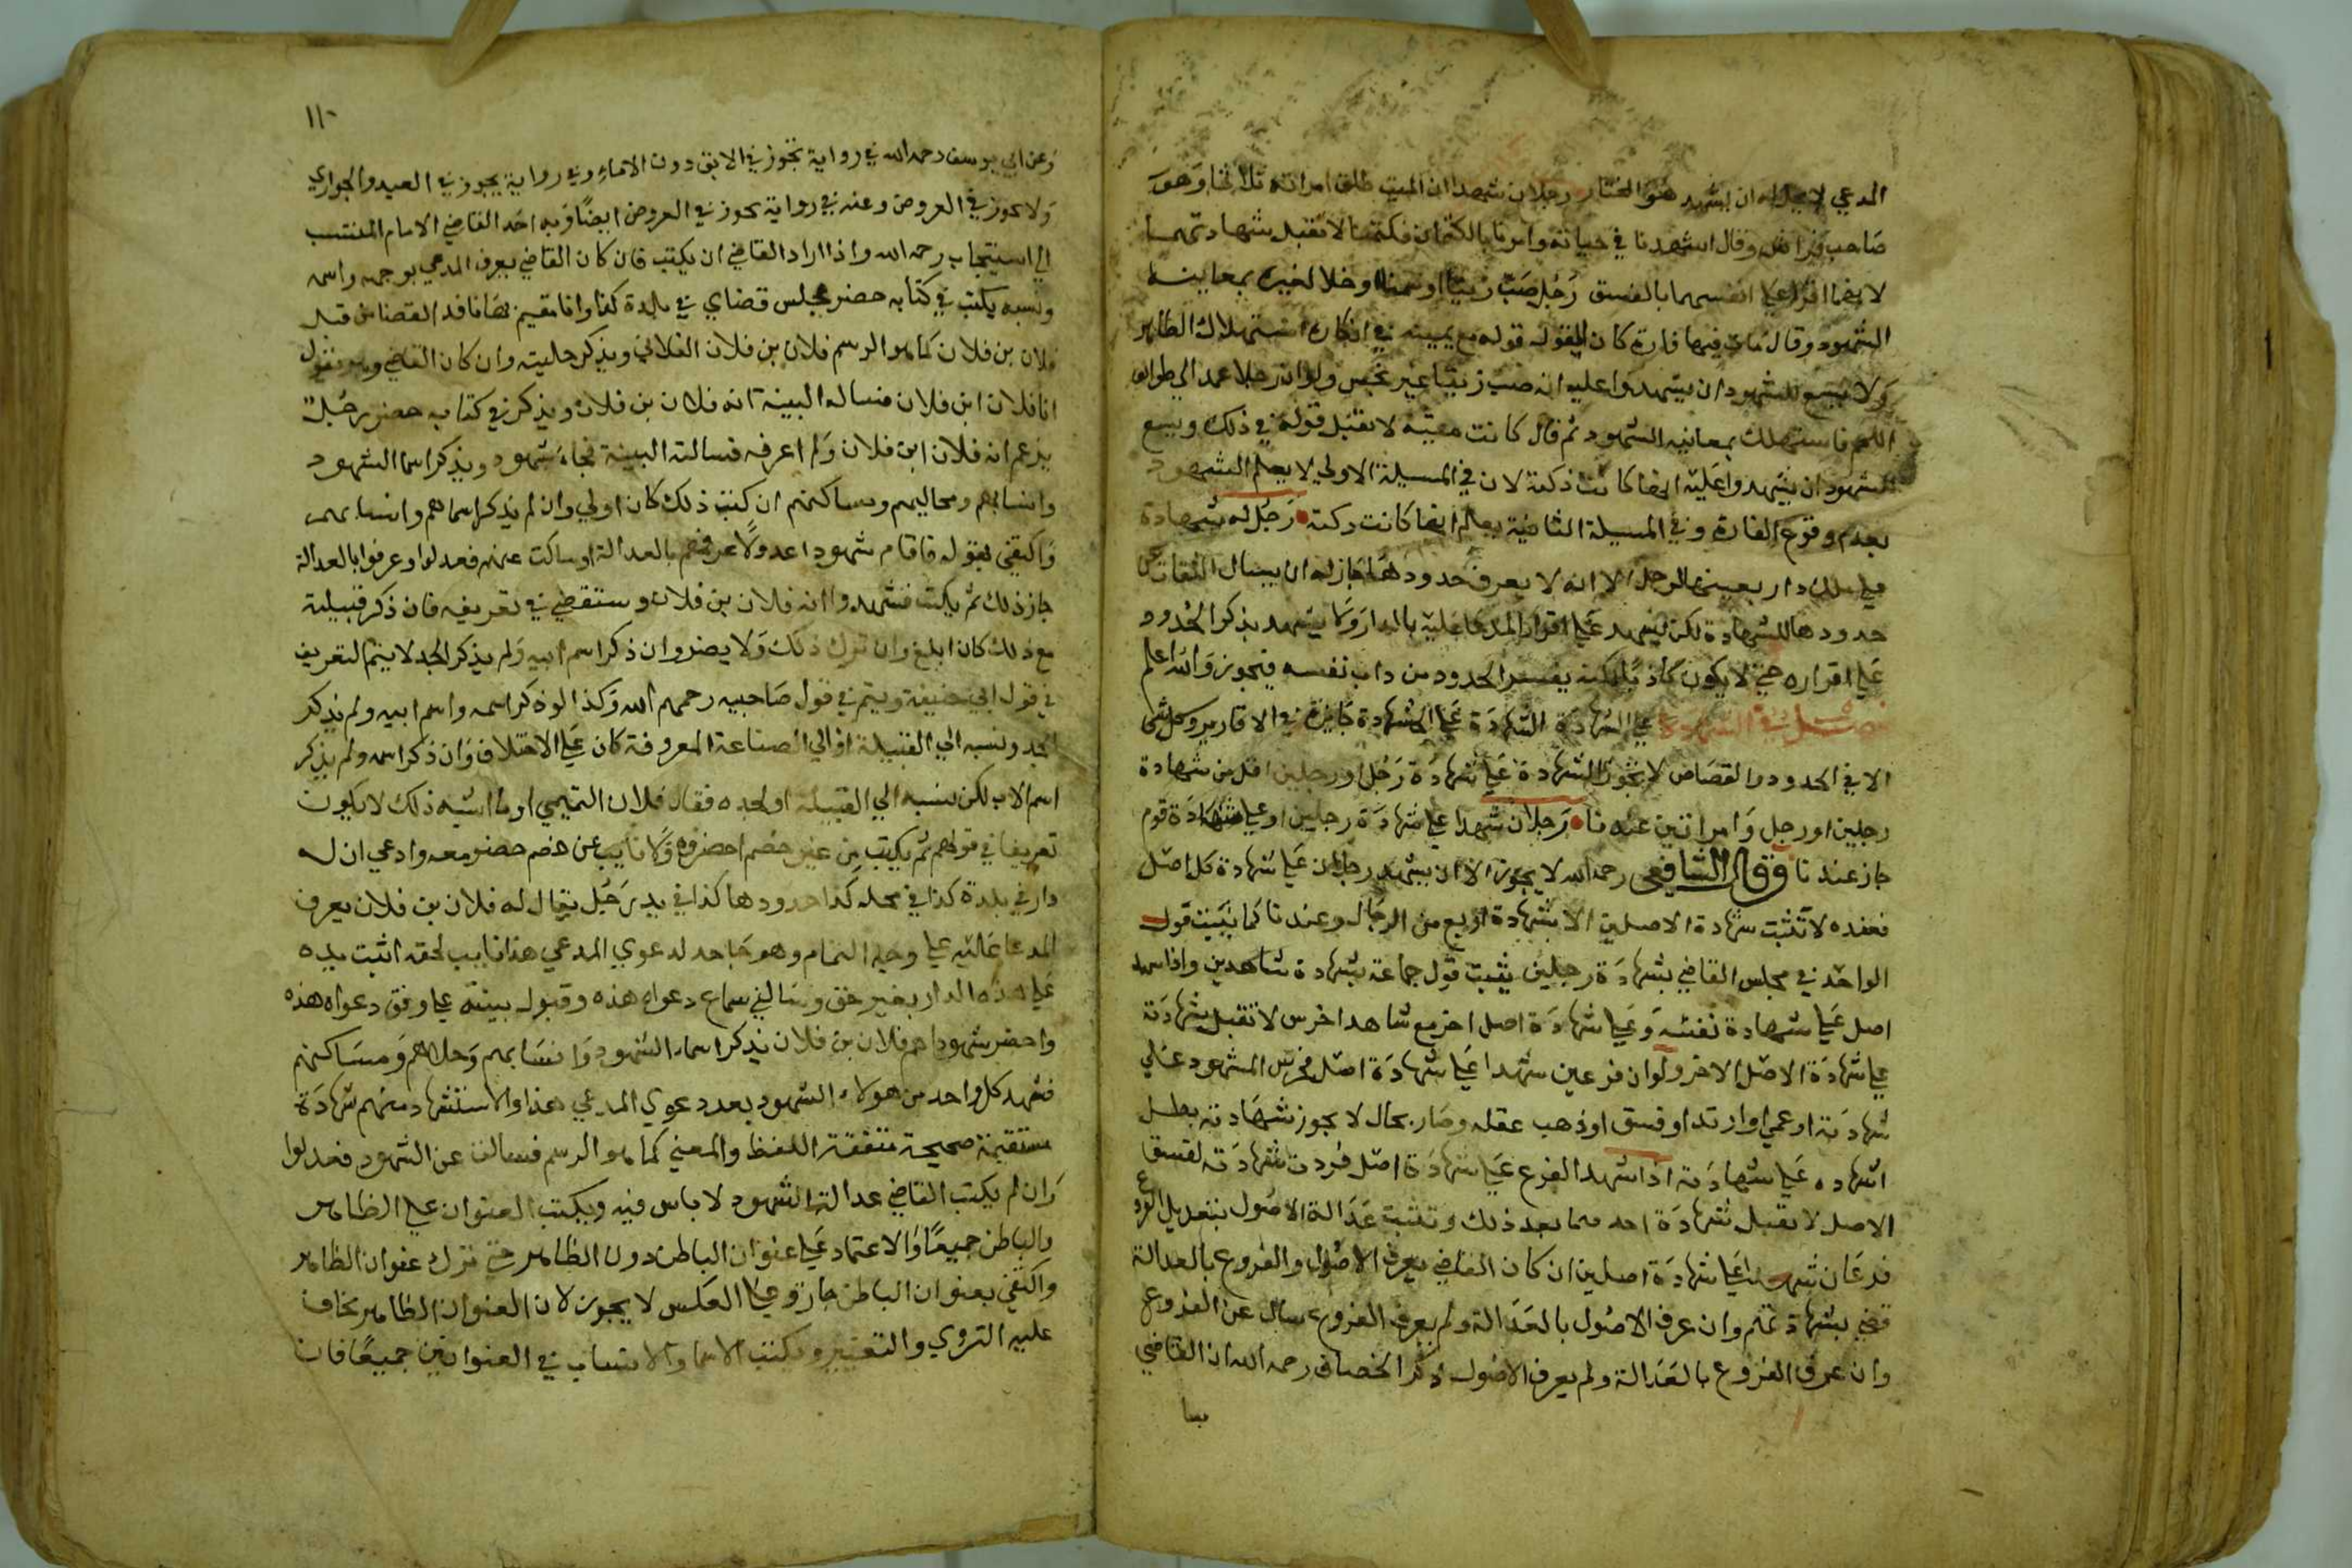 المدعي لا يحل له ان يشهد هو المختار رجلان شهدا ان الميت طلق امراته ثلاثا وهو
صاحب فراش وقال اشهدنا في حياته وامرنا بالكتمان فكتمنا لا تقبل شهادتهما
لانهما اقرا علي انفسهما بالفسق رجل صب زيتا او سمنا او خلا لغيره بمعاينة
الشهود وقال ماتت فيها فارة كان القول قوله مع يمينه في انكاره استهلاك الطاهر
ولا يسع للشهود ان يشهدوا عليه انه صب زيتا غير نجس ولو ان رجلا عمد الي طوابق
اللحم فاستهلك بمعاينه الشهود ثم قال كانت ميتة لا تقبل قوله في ذلك ويسع
للشهود ان يشهدوا عليه انها كانت ذكية لان في المسيلة الاولي لا يعلم الشهود
بعدم وقوع الفارة وفي المسيلة الثانية يعلم انها كانت ذكية رجل له شهادة
علي ملك دار بعينها لرجل الا انه لا يعرف حدودها جاز له ان يسال الثقات عن
حدودها للشهادة لكن يشهد علي اقرار المدعا عليه بالدار ولا يشهد بذكر الحدود
علي اقراره حتي لا يكون كاذبا لكنه يفسر الحدود من ذات نفسه فيجوز والله اعلم
فصل في الشهادة علي الشهادة الشهادة علي الشهادة جايزة في الاقارير وكل شي
الا في الحدود والقصاص لا يجوز الشهادة علي شهادة رجل او رجلين اقل من شهادة
رجلين او رجل وامراتين عندنا رجلان شهدا علي شهادة رجلين او علي شهادة قوم
جاز عندنا وقال الشافعي رحمه الله لا يجوز الا ان يشهد رجلان علي شهادة كل اصل
فعنده لا تثبت شهادة الاصلين الا بشهادة اربع من الرجال وعندنا كما يثبت قول
الواحد في مجلس القاضي بشهادة رجلين يثبت قول جماعة بشهادة شاهدين واذا شهد
اصل علي شهادة نفسه وعلي شهادة اصل اخر مع شاهد اخرس لا تقبل شهادته
علي شهادة الاصل الاخر ولو ان فرعين شهدا علي شهادة اصل فخرس المشهود علي
شهادته او عمي او ارتد او فسق او ذهب عقله وصار بحال لا يجوز شهادته بطل
اشهاده علي شهادته اذا شهد الفرع علي شهادة اصل فردت شهادته لفسق
الاصل لا تقبل شهادة احدهما بعد ذلك وتثبت عدالة الاصول بتعديل الفروع
فرعان شهدا علي شهادة اصلين ان كان القاضي يعرف الاصول والفروع بالعدالة
قضي بشهادتهم وان عرف الاصول بالعدالة ولم يعرف الفروع سال عن الفروع
وان عرف الفروع بالعدالة ولم يعرف الاصول ذكر الخصاف رحمه الله ان القاضي
١١٠
وعن ابي يوسف رحمه الله في رواية تجوز في الابق دون الاماء وفي رواية يجوز في العبيد والجواري
ولا يجوز في العروض وعنه في رواية يجوز في العروض ايضا وبه اخذ القاضي الامام المنتسب
الي اسبيجاب رحمه الله واذا اراد القاضي ان يكتب فان كان القاضي يعرف المدعي بوجهه واسمه
ونسبه يكتب في كتابه حضر مجلس قضاي في بلدة كذا وانا مقيم بها نافذ القضا من قبل
فلان بن فلان كما هو الرسم فلان بن فلان الفلاني ويذكر حليته وان كان القاضي وهو يقول
انا فلان ابن فلان فساله البينة انه فلان بن فلان ويذكر في كتابه حضر رجل
يزعم انه فلان ابن فلان ولم اعرفه فسالته البينة فجاء بشهود ويذكر اسما الشهود
وانسابهم ومحاليهم ومساكنهم ان كتب ذلك كان اولي وان لم يذكر اسماهم وانسابهم
واكتفي بقوله فاقام شهودا عدولا عرفتهم بالعدالة او سالت عنهم فعدلوا وعرفوا بالعدالة
جاز ذلك ثم يكتب فشهدوا انه فلان بن فلان ويستقضي في تعريفه فان ذكر قبيلته
مع ذلك كان ابلغ وان ترك ذلك ولا يضر وان ذكر اسم ابيه ولم يذكر الجد لا يتم التعريف
في قول ابي حنيفة ويتم في قول صاحبيه رحمهم الله وكذا لو ذكر اسمه واسم ابيه ولم يذكر
الجد ونسبه الي القبيلة او الي الصناعة المعروفة كان علي الاختلاف وان ذكر اسمه ولم يذكر
اسم الاب لكن نسبه الي القبيلة او لجده فقال فلان التميمي او ما اشبه ذلك لا يكون
تعريفا في قولهم ثم يكتب من غير خصم احضره ولا نايب عن خصم حضر معه وادعي ان له
دار في بلدة كذا في محله كذا حدودها كذا في يد رجل يقال له فلان بن فلان يعرف
المدعا عليه علي وجه التمام وهو جاحد لدعوي المدعي هذا نايب لحقه اثبت يده
علي هذه الدار بغير حق وسالني سماع دعواه هذه وقبول بينته علي وفق دعواه هذه
واحضر شهودا هم فلان بن فلان يذكر اسماء الشهود وانسابهم وحلاهم ومساكنهم
فشهد كل واحد من هولاء الشهود بعد دعوي المدعي هذا والاستشهاد منهم شهادة
مستقيمة صحيحة متفقة اللفظ والمعني كما هو الرسم فسالت عن الشهود فعدلوا
وان لم يكتب القاضي عدالة الشهود لا باس فيه ويكتب العنوان علي الظاهر
والباطن جميعا والاعتماد علي عنوان الباطن دون الظاهر حتي لو ترك عنوان الظاهر
واكتفي بعنوان الباطن جاز وعلي العكس لا يجوز لان العنوان الظاهر يخاف
عليه التزوير والتغيير ويكتب الاسما والانساب في العنوانين جميعا فان